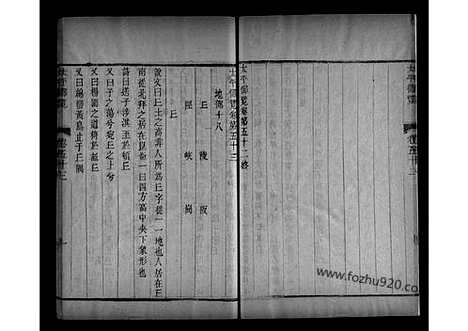 太平御覽卷第五十二終
太平御覽卷第五十三
地部十八
丘 陵 阪
陘 峽 崗
丘
說文曰丘土之高非人所爲丘字從一一地也人居在丘
南從北
一曰四方高中央下象形也
詩曰送子涉淇至于頓丘
又曰子之湯兮宛丘之上兮
又曰楊園之道猗于畝丘
又曰緜蠻黃鳥止于丘隅
太平御覽
卷五十三
www.fozhu920.com